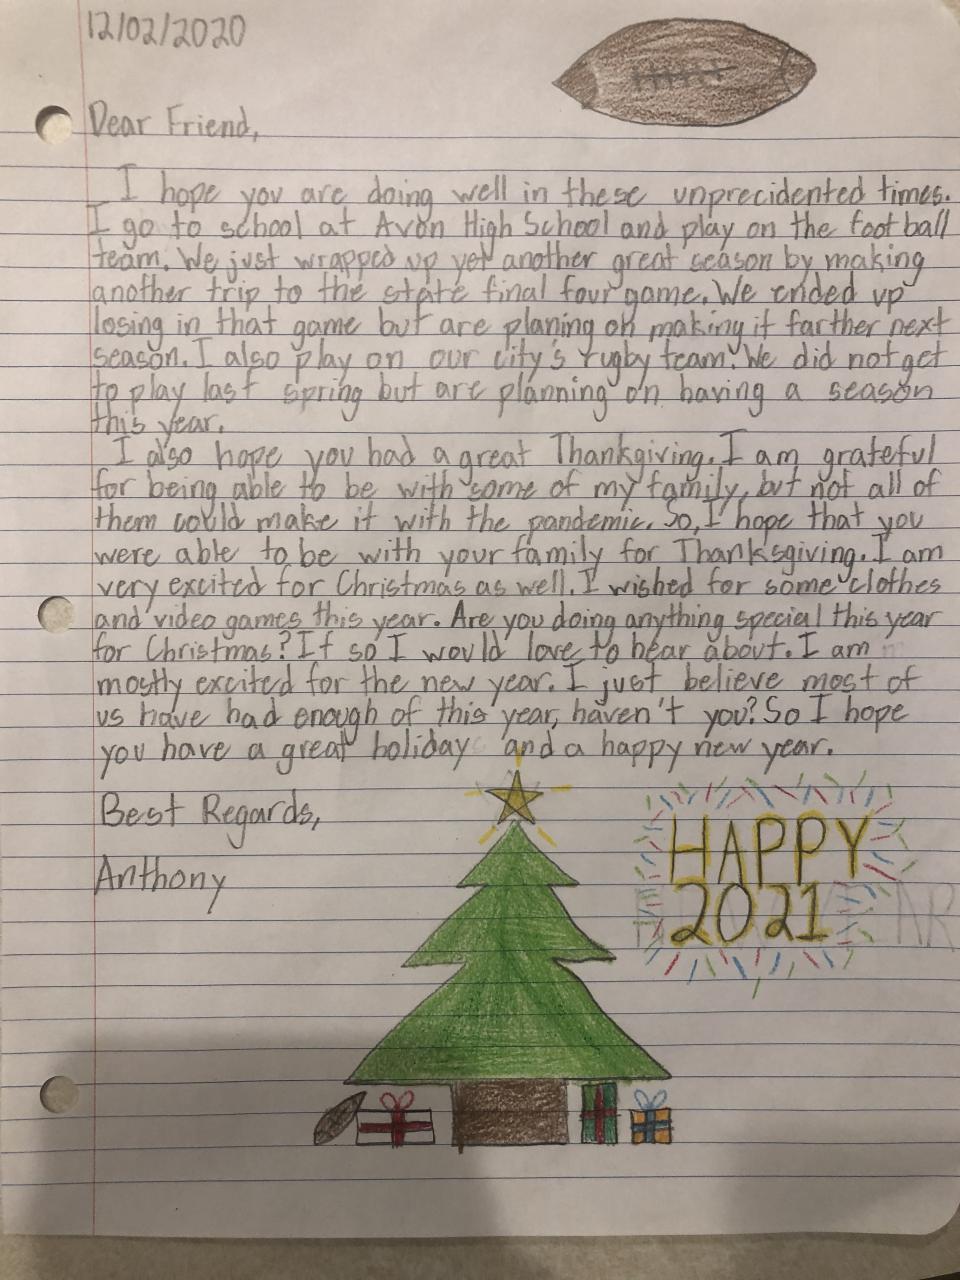 12/02/2020
Dear Friend,
I hope you are doing well in these unprecidented times.
I go to school at Avon High School and play on the football
team. We just wrapped up yet another great season by making
another trip to the state final four game. We ended up
losing in that game but are planing on making it farther next
season. I also play on our city's rugby team. We did not get
to play last spring but are planning on having a season
this year.
I also hope you had a great Thankgiving. I am grateful
for being able to be with some of my family, but not all of
them could make it with the pandemic. So, I hope that you
were able to be with your family for Thanksgiving. I am
very excited for Christmas as well. I wished for some clothes
and video games this year. Are you doing anything special this year
for Christmas? If so I would love to hear about. I am
mostly excited for the new year. I just believe most of
us have had enough of this year, haven't you? So I hope
you have a great holiday and a happy new year.
Best Regards,
Anthony
HAPPY
2021